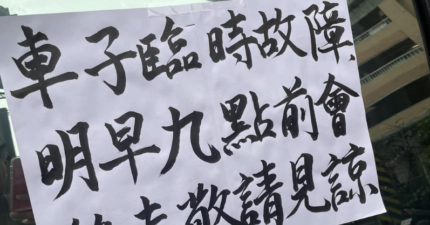 車子臨時故障
明早九點前會
敬請見諒